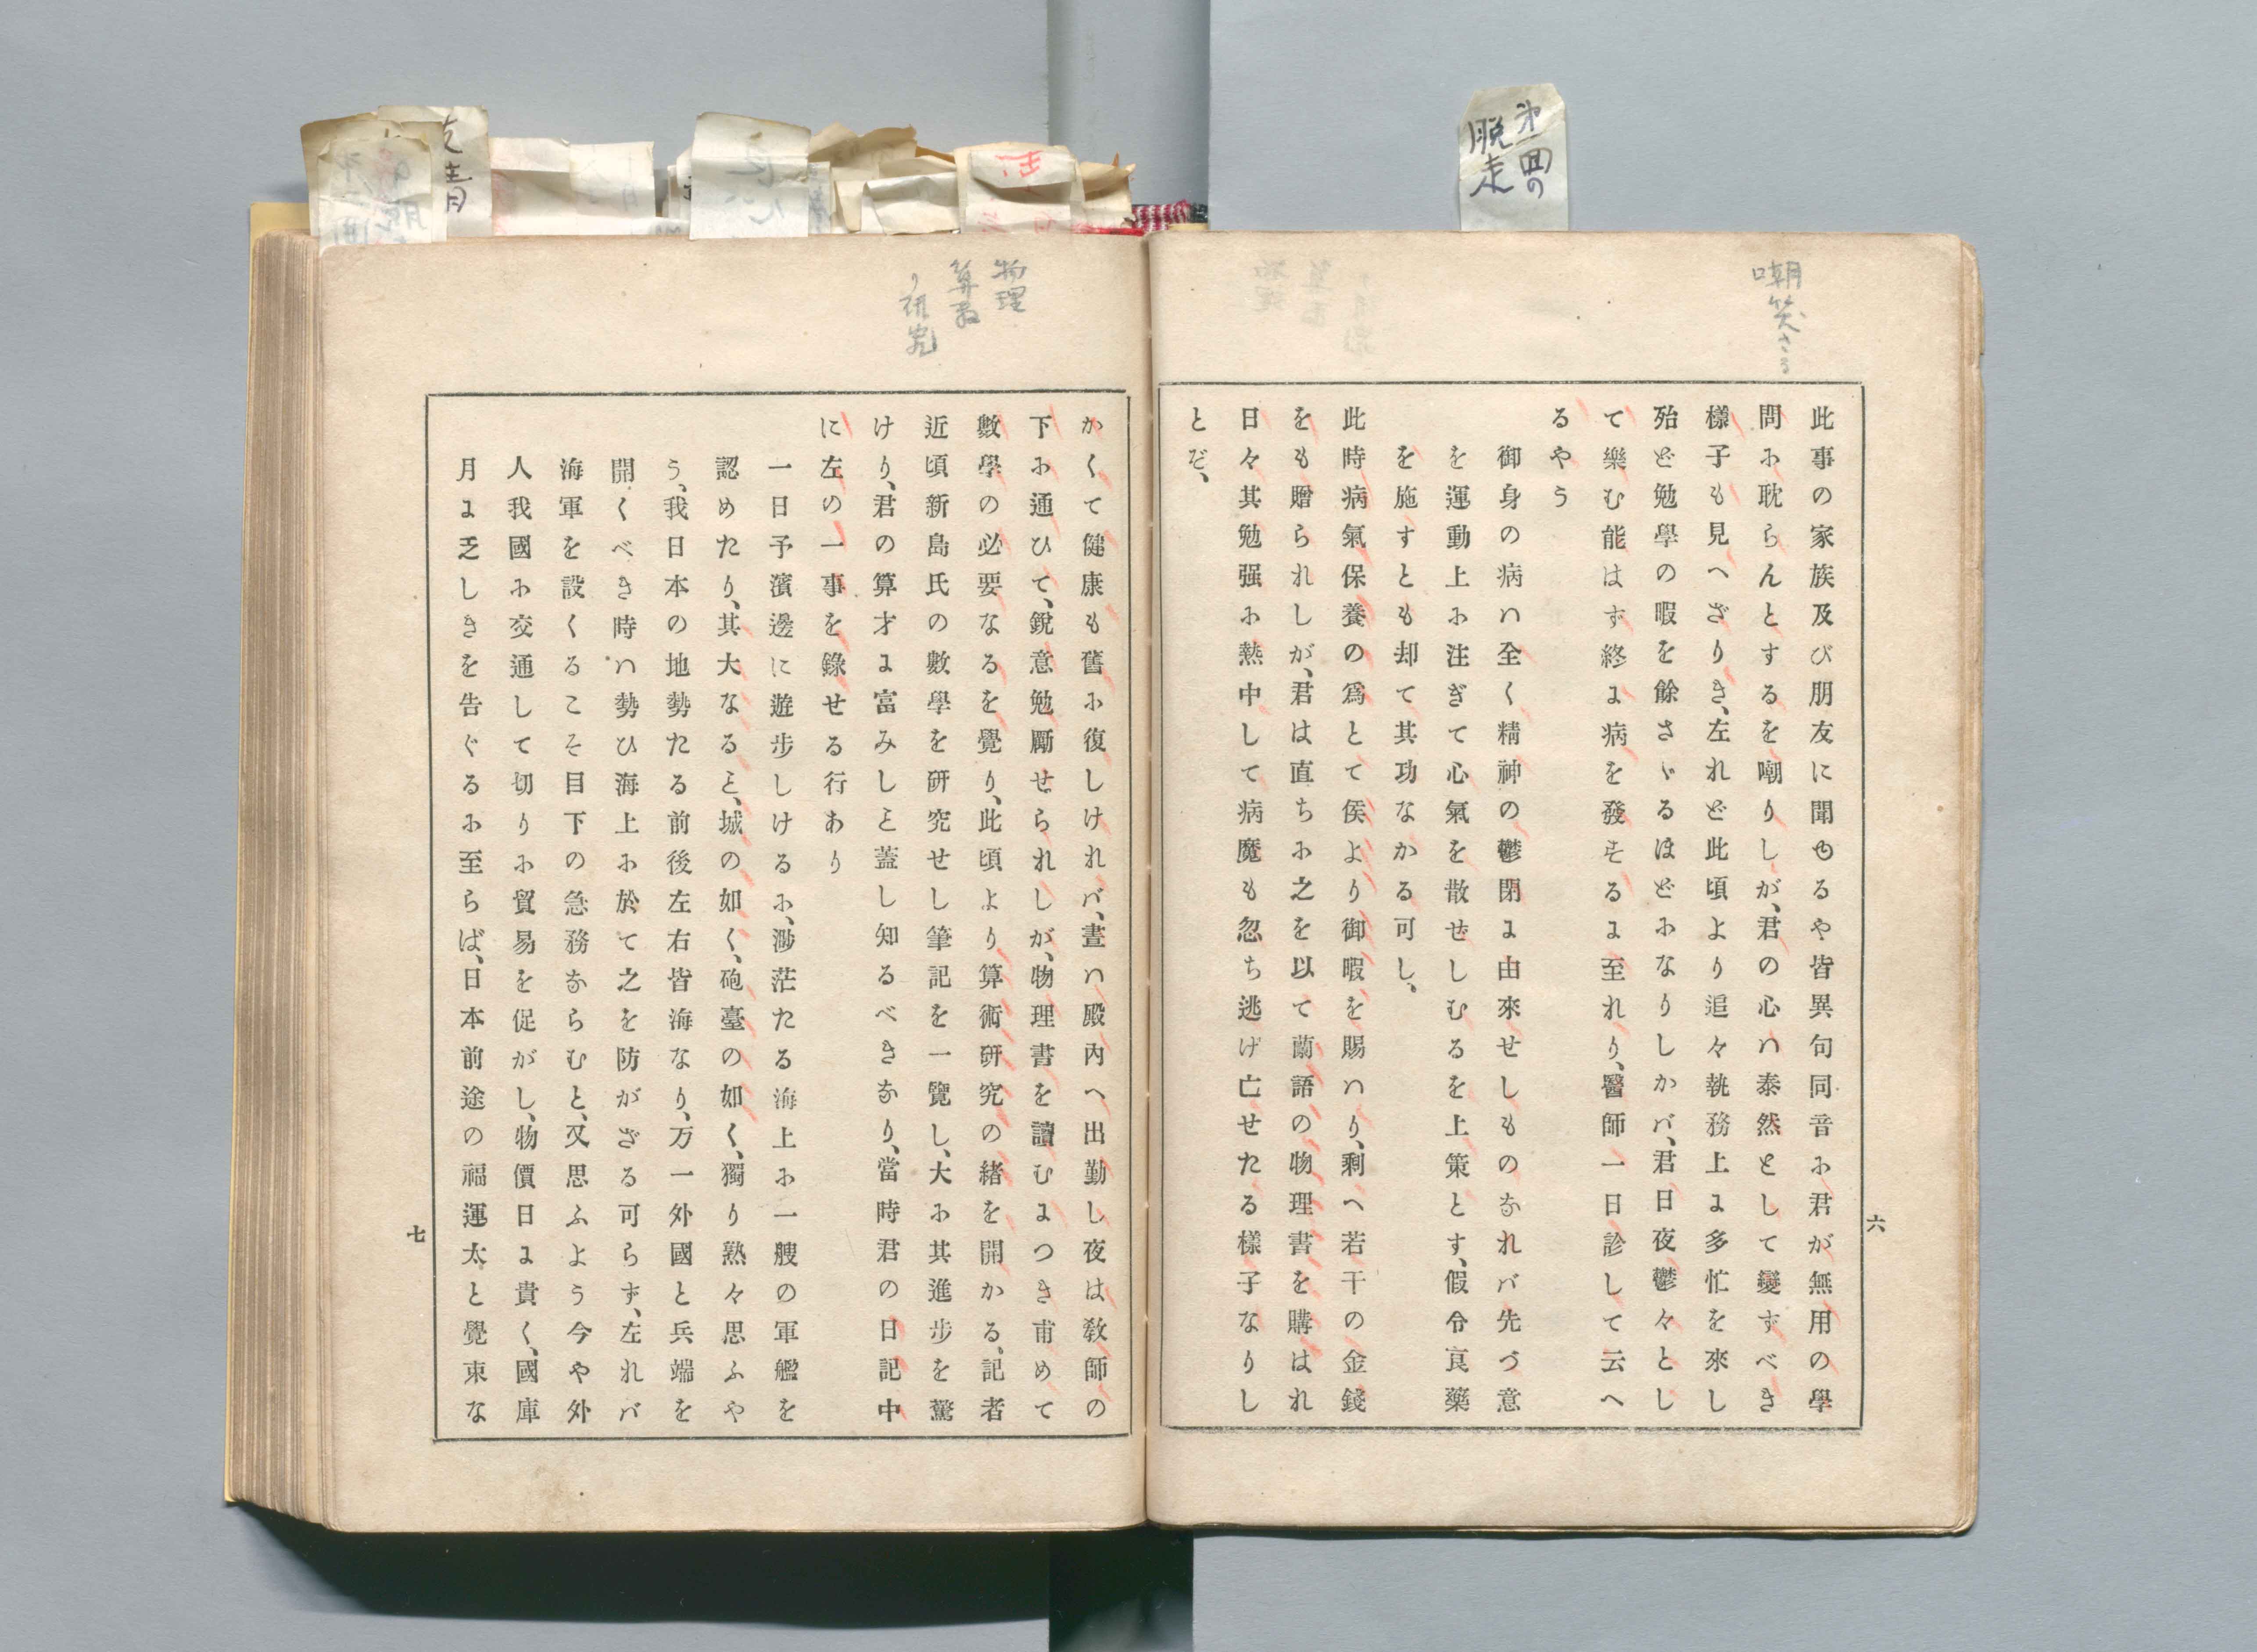 第一回の
脱走
嘲笑さる
此事の家族及び朋友に聞ゆるや皆異句同音に君が無用の學
問に耽らんとするを嘲りしが、君の心ハ泰然として變ずべき
樣子も見へざりき、左れど此頃より追々執務上に多忙を來し
殆ど勉學の暇を餘さゞるほどになりしかバ、君日夜鬱々とし
て樂む能はず終に病を發するに至れり、醫師一日診して云へ
るやう
御身の病ハ全く精神の鬱閉に由來せしものなれバ先づ意
を運動上に注ぎて心氣を散せしむるを上策とす、假令良藥
を施すとも却て其功なかる可し、
此時病氣保養の爲とて侯より御暇を賜ハり、剩へ若干の金錢
をも贈られしが、君は直ちに之を以て蘭語の物理書を購はれ
日々其勉强に熱中して病魔も忽ち逃げ亡せたる樣子なりし
とぞ、
六
物理
算数
り研究
かくて健康も舊に復しけれバ、晝ハ殿內へ出勤し夜は敎師の
下に通ひて、銳意勉勵せられしが、物理書を讀むにつき甫めて
數學の必要なるを覺り、此頃より算術硏究の緖を開かる、記者
近頃新島氏の數學を硏究せし筆記を一覽し、大に其進步を驚
けり、君の算才に富みしと蓋し知るべきなり、當時君の日記中
に左の一事を錄せる行あり
一日予濱邊に遊步しけるに、渺茫たる海上に一艘の軍艦を
認めたり、其大なると、城の如く、砲臺の如く、獨り熟々思ふや
う、我日本の地勢たる前後左右皆海なり、万一外國と兵端を
開くべき時ハ勢ひ海上に於て之を防がざる可らず、左れバ
海軍を設くるこそ目下の急務ならむと、又思ふよう今や外
人我國に交通して切りに貿易を促がし、物價日に貴く、國庫
月に乏しきを告ぐるに至らば、日本前途の福運太と覺束な
七